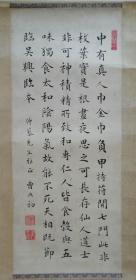 中有真人巾金巾負甲持符開七門此非
枝葉實是根晝夜思之可長存仙人道士
非可神積精所致和專仁人皆食穀與五
味獨食太和陰陽氣故能不死天相既
臨吳興臨本 先生正